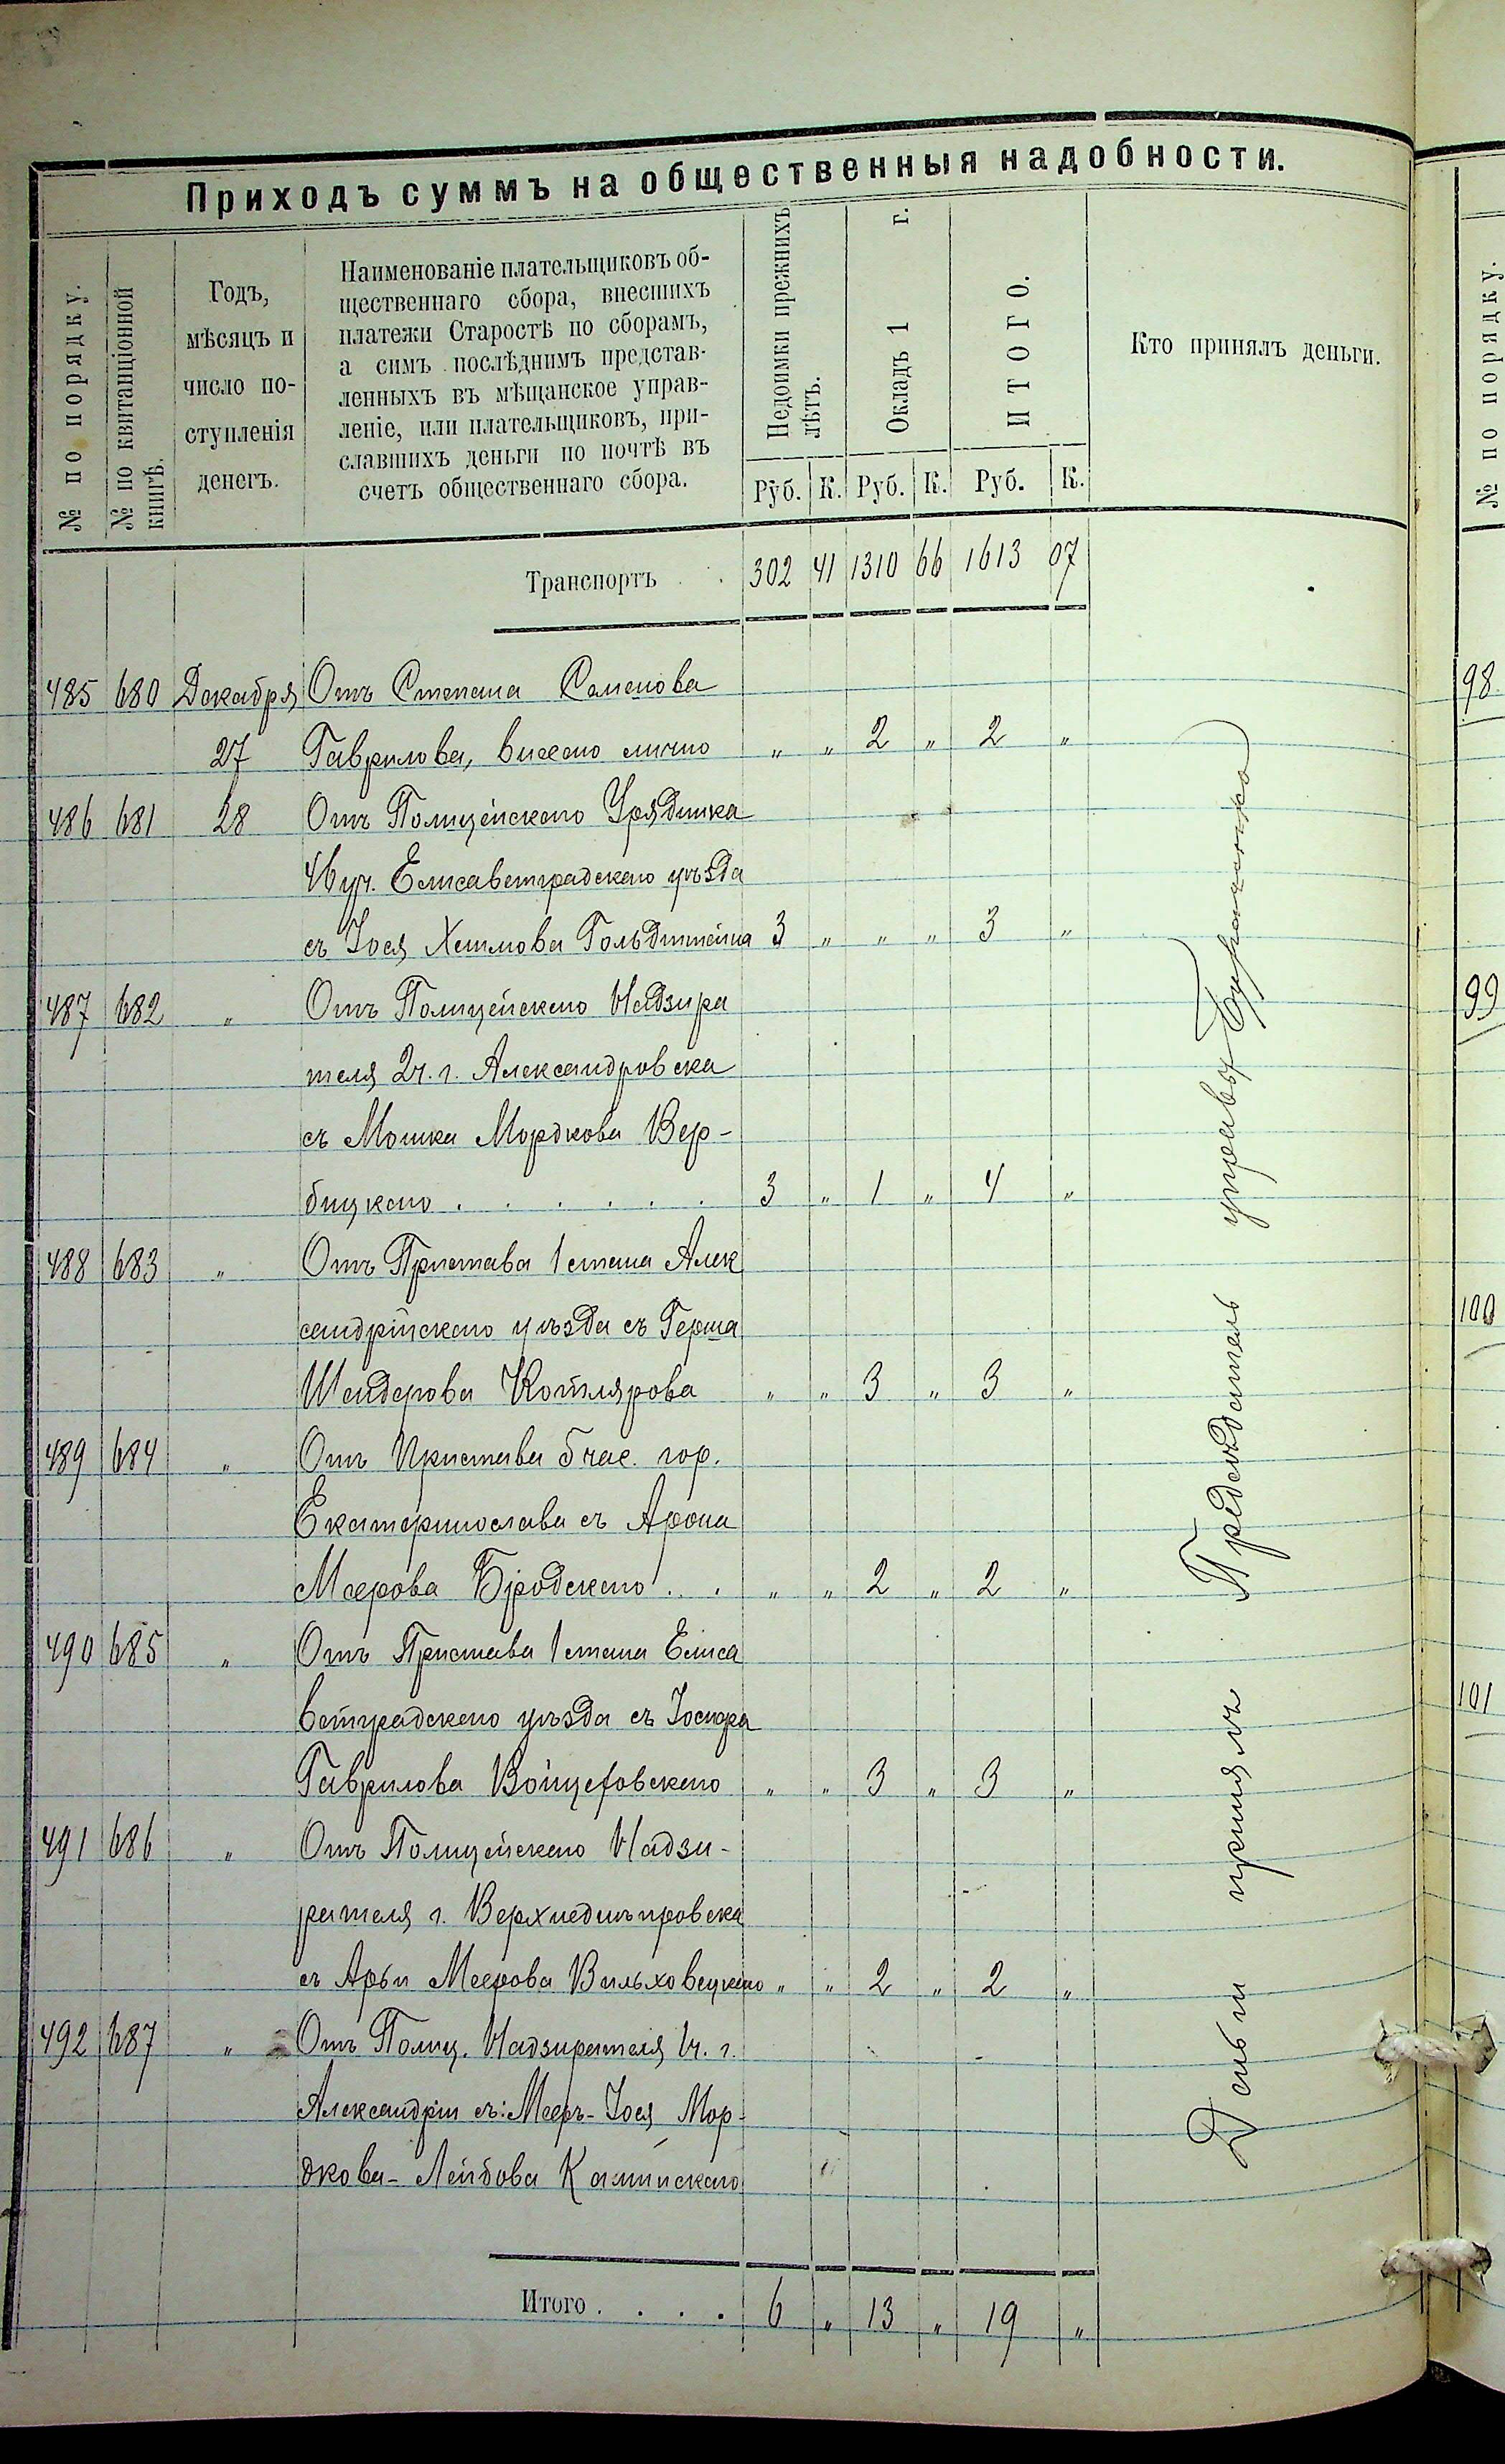 Приходъ суммъ на общественныя надобности.
№ по порядку.
№ по квитанціонной
книгѣ.
Годъ,
мѣсяцъ и
число по-
ступленія
денегъ.
Наименованіе плательщиковъ об-
щественнаго сбора, внесшихъ
платежи Старостѣ по сборамъ,
а симъ послѣднимъ представ-
ленныхъ въ мѣщанское управ-
леніе, или плательщиковъ, при-
славшихъ деньги по почтѣ въ
счетъ общественнаго сбора.
Недоимки прежнихъ
лѣтъ.
Окладъ 1 г.
ИТОГО.
Кто принялъ деньги.
Руб. К. Руб. К. Руб. К.
Транспортъ . . 302 41 1310 66 1613 07
485 680 Декабря Отъ Степана Семенова
27 Гаврилова, внесено лично „ „ 2 „ 2 „
486 681 28 Отъ Полицейскаго Урядника
4 уч. Елисаветградскаго уѣзда
съ Іося Хаимова Гольдштейна 3 „ „ „ 3 „
487 682 „ Отъ Полицейскаго Надзира
теля 2 ч. г. Александровска
съ Мошка Мордкова Вер-
бицкаго . . . . . . 3 „ 1 „ 4 „
488 683 „ Отъ Пристава 1 стана Алек
сандрійскаго уѣзда съ Герша
Шендерова Котлярова „ „ 3 „ 3 „
489 684 „ Отъ Пристава 5 час. гор.
Екатеринослава съ Арона
Меерова Бродскаго . . „ „ 2 „ 2 „
490 685 „ Отъ Пристава 1 стана Елиса
ветградскаго уѣзда съ Іосифа
Гаврилова Войцеховскаго „ „ 3 „ 3 „
491 686 „ Отъ Полицейскаго Надзи-
рателя г. Верхнеднѣпровска
съ Арьи Меерова Вильховецкаго „ „ 2 „ 2 „
492 687 „ Отъ Полиц. Надзирателя 1 ч. г.
Александріи съ: Мееръ-Іося Мор-
дкова-Лейбова Каминскаго
Итого . . . . 6 „ 13 „ 19 „
Деньги принялъ Предсѣдатель управы
№ по порядку.
98
99
100
101